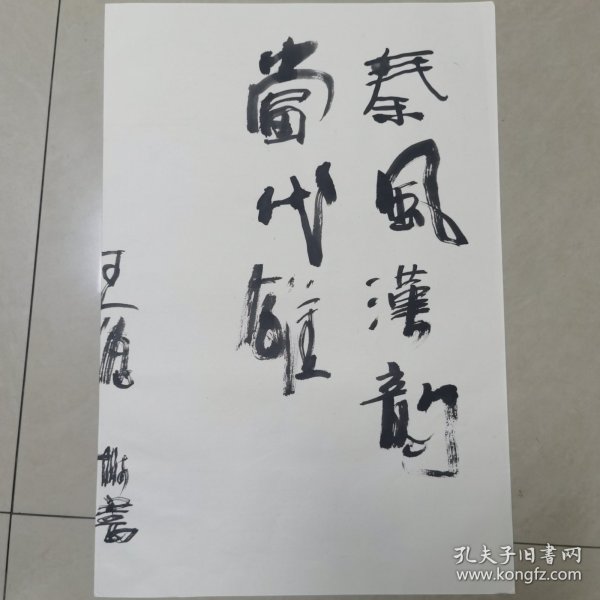 秦風漢韵
當代雄
書
孔夫子旧書网
www.kongfz.com